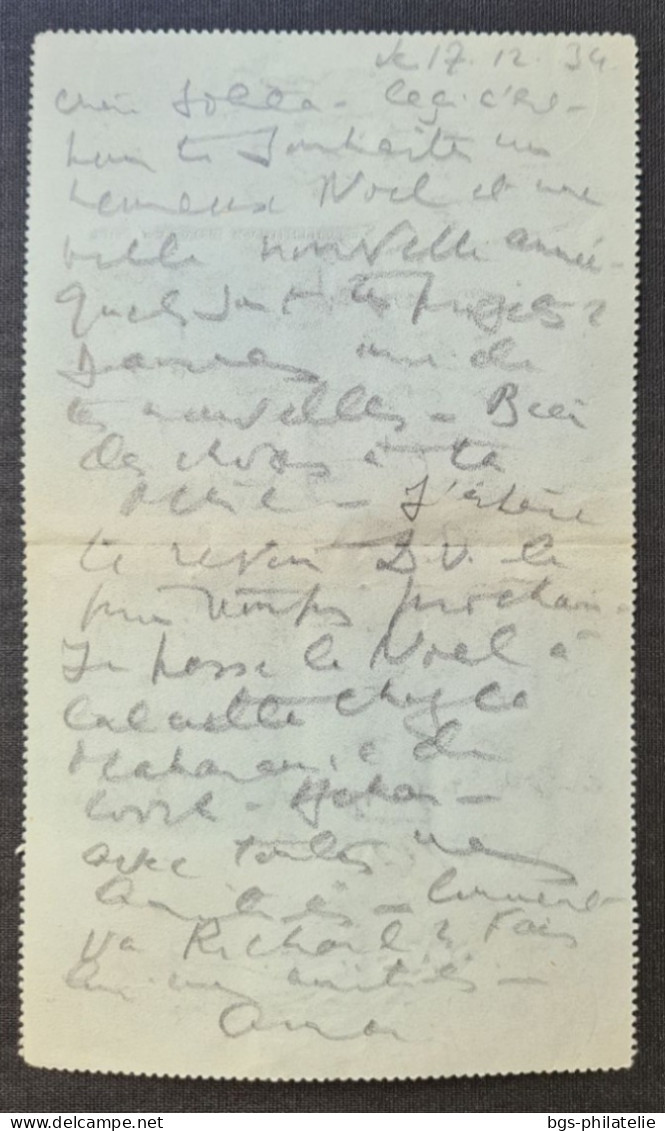 le 17.12.34.
te souhaiter un
heureux Noël et une
belle nouvelle année.
Quels sont tes projets?
Donnes moi de
tes nouvelles - Bien
des choses à ta
- J'espère
te revoir D.V. le
printemps prochain -
Je passe le Noël à
Calcutta chez la
Maharani de
avec toutes mes
amitiés - Comment
va Richard? Fais
lui mes amitiés -
bgs-philatelie